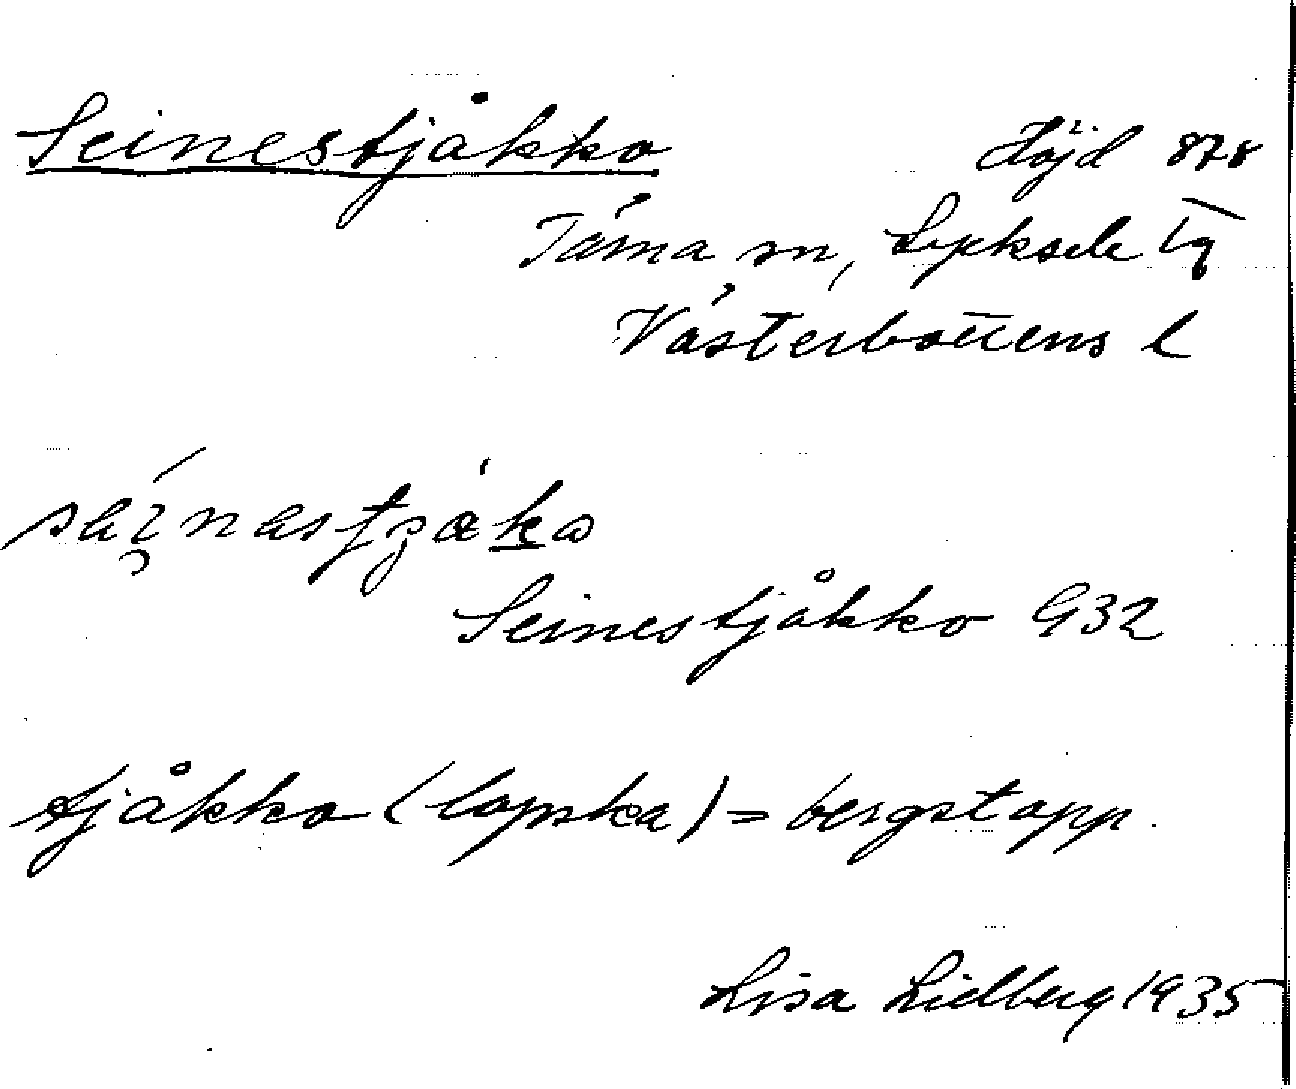 Seinestjåkko Höjd 878
Tärna sn, Lycksele lg
Västerbottens l
Seinestjåkko G32
tjåkko (lapska) = bergstopp.
Lisa Lidberg 1935